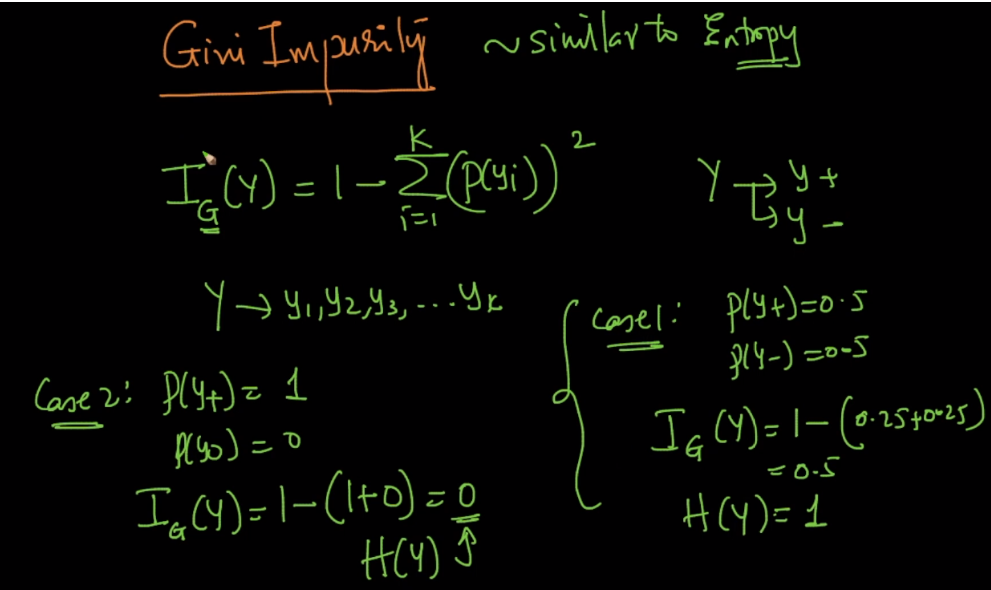 Gini Impurity ~ similar to Entropy
I_G(Y) = 1 - Σ_{i=1}^{K} (P(yi))²
Y → y+
↳ y-
Y → y1, y2, y3, ... yk
Case 1: P(y+) = 0.5
P(y-) = 0.5
I_G(Y) = 1 - (0.25+0.25)
= 0.5
H(Y) = 1
Case 2: P(y+) = 1
P(y0) = 0
I_G(Y) = 1 - (1+0) = 0
H(Y) ↑